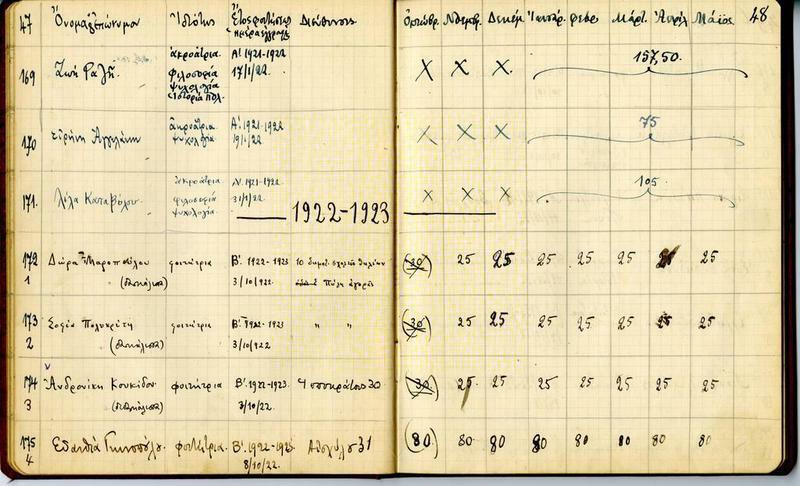 47 Ὀνοματεπώνυμον Ἰδιότης Ἔτος φοιτήσεως Διεύθυνσις Ὀκτώβρ. Νοεμβρ. Δεκέμ. Ἰανουάρ. Φεβρ Μάρτ. Ἀπρίλ Μάϊος 48
ἡμέρα ἐγγραφῆς
ἀκροάτρια Α! 1921-1922
169 Ζωή Φαλῆ. φιλοσοφία 17/1/22. X X X. 157,50.
ψυχολογία
ἱστορία πολ.
170 Εἰρήνη ἀκροάτρια Α! 1921-1922 X X X 75
ψυχολογία 19/1/22.
ἀκροάτρια Α! 1921-1922.
171. Λέλα Καταβόλου. φιλοσοφία 31/1/22. X X X 105.
ψυχολογία.
1922-1923
172 Δώρα Μαροπούλου φοιτήτρια Β'. 1922-1923 10 δημοτ. σχολεῖο θηλέων (30) 25 25 25 25 25 25 25
1 (διδασκάλισσα) 3/10/922.
173 Σοφία Πολυκρέτη φοιτήτρια Β' 1922-1923 " " (30) 25 25 25 25 25 25 25
2 (διδασκάλισσα) 3/10/922
174 Ἀνδρονίκη Κουκίδου φοιτήτρια Β'. 1922-1923. Ἱπποκράτους 30 (30) 25 25. 25 25 25 25 25
3 (διδασκάλισσα) 3/10/22.
175 Εὐανθία φοιτήτρια. Β'. 1922-1923. 31 (80) 80 80 80 80 80 80 80
4 8/10/22.